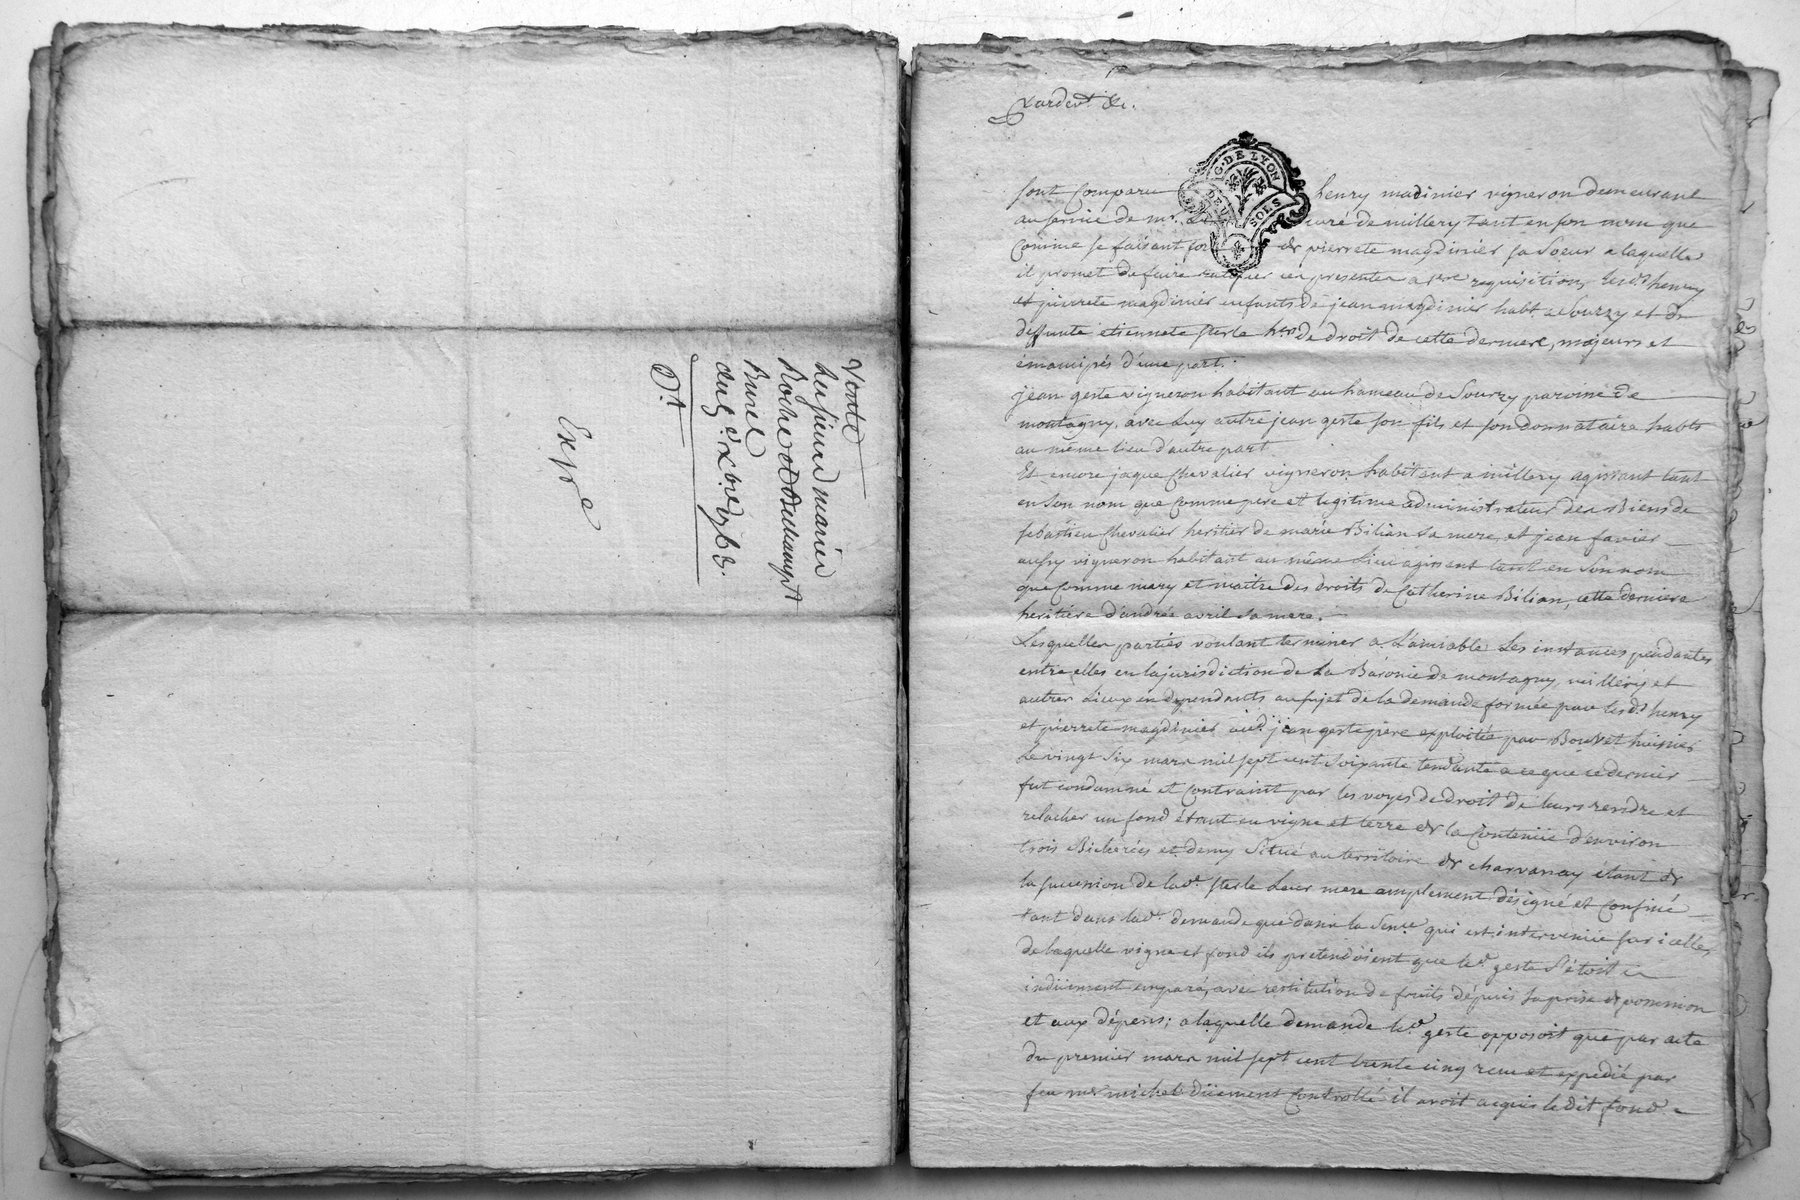 Vente
les sieurs mariés
Roche et
Burel
du 5e xbre 1763.
Dt
Expé
Pardevt &c.
G. DE LYON
DEUX SOLS
sont Comparu henry madinier vigneron demeurant
au service de mr. curé de millery tant en son nom que
Comme se faisant fort de pierrete magdinier sa soeur a laquelle
il promet de faire ratifier ces presentes a 1ere requisition, lesd. henry
et pierrete magdinier enfants de jean magdinier habt a Sourzy et de
deffunte etiennete sterle hers de droit de cette derniere, majeurs et
émancipés d'une part.
jean geste vigneron habitant au hameau de Sourzy paroisse de
montagny, avec luy autre jean geste son fils et son donnataire habts
au même lieu d'autre part
Et encore jaque Chevalier vigneron habitant a millery agissant tant
en son nom que comme pere et legitime administrateur des Biens de
sebastien Chevalier heritier de marie Bilian sa mere, et jean favier
aussy vigneron habitant au même Lieu agissant tant en Son nom
que Comme mary et maitre des droits de Catherine Bilian, cette derniere
heritiere d'andrée avril sa mere.
Lesquelles parties voulant terminer a L'amiable Les instances pendantes
entre elles en la jurisdiction de La Baronie de montagny, millery et
autres Lieux en dependants au sujet de la demande formée par lesd. henry
et pierrete magdinier aud. jean geste pere exploitée par Bouvet huissier
Le vingt Six mars mil sept cent Soixante tendante a ce que ce dernier
fut condamné et Contraint par les voyes de droit de leurs rendre et
relâcher un fond étant en vigne et terre de la Contenüe d'environ
trois Bicherées et demy Situé au territoire de charvanay étant de
la succession de lade. sterle Leur mere amplement désigné et confiné
tant dans lade. demande que dans la Sence qui est intervenüe sur icelle,
de laquelle vigne et fond ils pretendoient que led. geste S'étoit
indüement emparé, avec restitution de fruits depuis sa prise de possession
et aux dépens; a laquelle demande led. geste opposoit que par acte
du premier mars mil sept cent trente cinq recu et expedié par
feu me michel düement Controllé il avoit acquis le dit fond